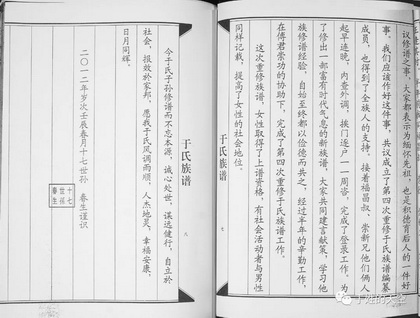 议修谱之事，大家都表示为缅怀先祖，也是积德育后人的一件好
事。我们应该作好这件事，共议成立了第四次重修于氏族谱编纂
成员，也得到了全族人的支持。接着福昌叔、崇新兄他们俩人
起早连晚，内查外调，挨门逐户一一周咨，完成了登录工作。为
了修出一部富有时代气息的新族谱，大家共同建言献策，学习他
族修谱经验，自始至终都以俭德而共之，经过半年的辛勤工作，
在傅君崇功的协助下，完成了第四次重修于氏族谱工作。
这次重修族谱，女性取得了上谱资格，有社会活动者与男性
同样记载，提高了女性的社会地位。
于氏族谱
七
于氏族谱
八
今于氏子孙修谱而不忘本源，诚心处世，谋远健行，自立於
社会，报效於家邦，愿我于氏风调雨顺，人杰地灵，幸福安康，
日月同辉。
二〇一二年岁次壬辰春月十七世孙 春生谨识
十七
世孙
春生